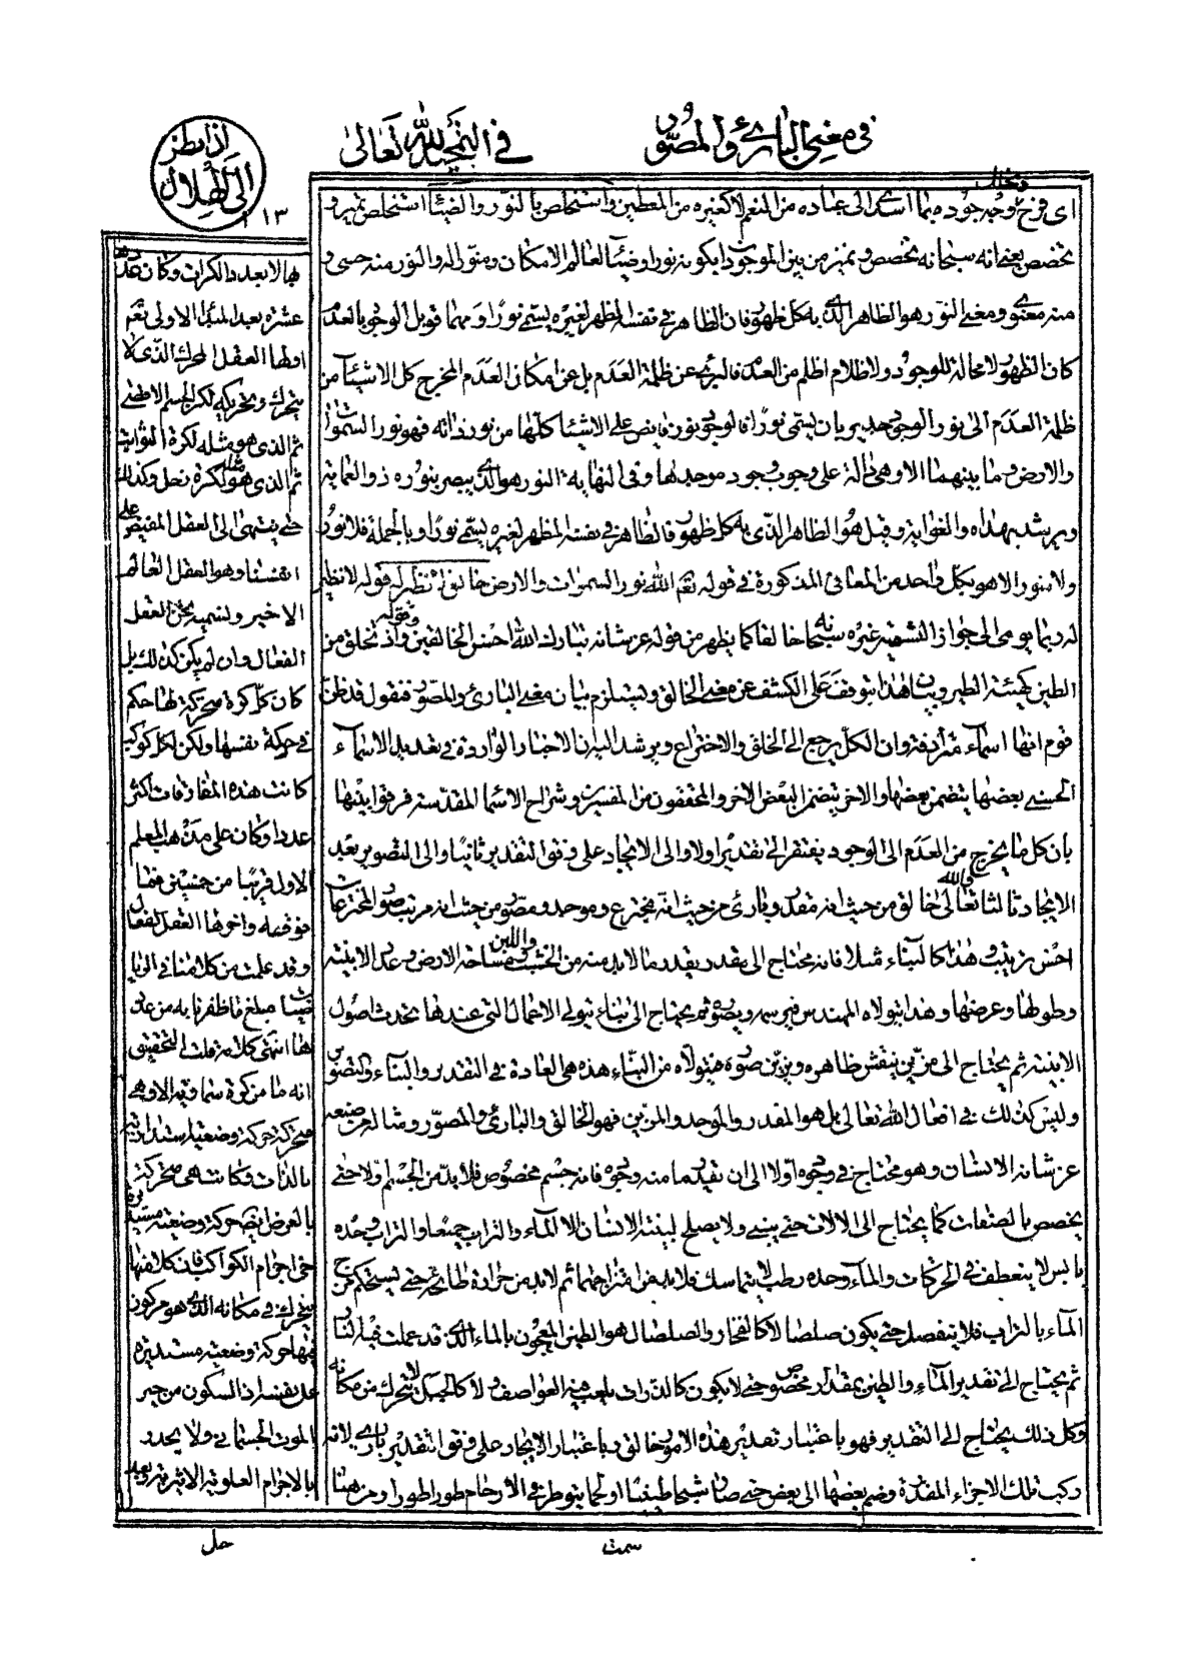 في معنى البارئ والمصور
في التمجيد لله تعالى
اذا نظر
الى الهلال
١١٣
اى فرخ وجه جوده بما اسدى الى عباده من النعم لا كغيره من المعطين واستخلص بالنور والضياء استخلص تميز و
تخصص يعنى انه سبحانه تخصص وتميز من بين الموجودات بكونه نورا وضياء لعالم الامكان ومنورا له والنور منه حسى و
منه معنوى ومعنى النور هو الظاهر الذى به كل ظهور فان الظاهر في نفسه المظهر لغيره يسمى نورا ومهما قوبل الوجود بالعدم
كان الظهور لا محالة للوجود ولا ظلام اظلم من العدم فالبرئ عن ظلمة العدم بل عن امكان العدم المخرج كل الاشياء من
ظلمة العدم الى نور الوجود جدير بان يسمى نورا فالوجود نور فايض على الاشياء كلها من نور ذاته فهو نور السموات
والارض وما بينهما الا وهى دالة على وجوب وجود موجدها وفى النهاية النور هو الذى يبصر بنوره ذو العماية
ويرشد بهداه ذو الغواية وقيل هو الظاهر الذى به كل ظهور فالظاهر في نفسه المظهر لغيره يسمى نورا وبالجملة فلا نور
ولا منور الا هو بكل واحد من المعانى المذكورة في قوله تعم الله نور السموات والارض خالق لا نظير له قوله لا نظير
له ربما يومى الى جواز التسمية غيره سبحانه خالقا كما يظهر من قوله عز شانه تبارك الله احسن الخالقين وقوله واذ تخلق من
الطين كهيئة الطير وبيان هذا يتوقف على الكشف عن معنى الخالق ويستلزم بيان معنى البارئ والمصور فنقول قد ظن
قوم انها اسماء مترادفة وان الكل يرجع الى الخلق والاختراع ويرشد اليه الاخبار الواردة في تعديل الاسماء
الحسنى بعضها يتضمن بعضها والاخر يتضمن البعض الاخر والمحققون من المفسرين وشراح الاسماء المقدسة فرقوا بينها
بان كل ما يخرج من العدم الى الوجود يفتقر الى تقدير اولا والى الايجاد على وفق التقدير ثانيا والى التصوير بعد
الايجاد ثالثا والله تعالى خالق من حيث انه مقدر وبارئ من حيث انه مخترع وموجد ومصور من حيث انه مرتب صور المخترعات
احسن ترتيب وهذا كالبناء مثلا فانه يحتاج الى مقدر يقدر ما لا بد منه من الخشب واللبن ومساحة الارض وعدد الابنية
وطولها وعرضها وهذا يتولاه المهندس فيرسمه ويصوره ثم يحتاج الى بناء يتولى الاعمال التى عندها يحدث اصول
الابنية ثم يحتاج الى مزين ينقش ظاهره ويزين صورته فيتولاه من البناء هذه هى العادة في التقدير والبناء والتصوير
وليس كذلك في افعال الله تعالى بل هو المقدر والموجد والمزين فهو الخالق والبارئ والمصور ومثاله من صنعه
عز شانه الانسان وهو محتاج في وجوده اولا الى ان يقدر ما منه وجوده فانه جسم مخصوص فلا بد من الجسم اولا حتى
يخصص بالصفات كما يحتاج الى الالات حتى يبنى ولا يصلح لبنية الانسان الا الماء والتراب جميعا والتراب وحده
يابس لا ينعطف في الحركات والماء وحده رطب لا يتماسك فلا بد من امتزاجهما ثم لا بد من حرارة طابخة حتى يستحكم مزج
الماء بالتراب فلا ينفصل حتى يكون صلصالا كالفخار والصلصال هو الطين المعجون بالماء الذى قد عملت فيه النار
ثم يحتاج الى تقدير الماء والطين بمقدار مخصوص حتى لا يكون كالذرات يلعب به العواصف ولا كالجبل لا يتحرك من مكانه
وكل ذلك يحتاج الى التقدير فهو باعتبار تقدير هذه الامور خالق وباعتبار الايجاد على وفق التقدير بارئ لانه
ركب تلك الاجزاء المقدرة وضم بعضها الى بعض حتى صارت شبحا طينيا او لحما يتوطر في الارحام طورا طورا ومن هنا
سمت
بها لا بعدد الكرات وكان عددها
عشرة بعد المبدء الاول تعم
اولها العقل المحرك الذى لا
يتحرك وتحريكه لكرة الجسم الاقصى
ثم الذى هو مثله لكرة الثوابت
ثم الذى هو مثله لكرة زحل وكذلك
حتى ينتهى الى العقل المفيض على
انفسنا وهو العقل العالم
الاخير ونسميه نحن العقل
الفعال وان لم يكن كذلك بل
كان كل كرة متحركة لها حكم
في حركة نفسها ولكن لكل كوكب
كانت هذه المفارقات اكثر
عددا وكان على مذهب المعلم
الاول قريبا من خمسين فما
فوقه واخرها العقل الفعال
وقد علمت من كلامنا في الريا
ضيات مبلغ ما ظفرنا به من عدد
ها انتهى كلامه قلت التحقيق
انه ما من كرة سماوية الا وهى
متحركة حركة وضعية مستديرة
بالذات وكانت هى متحركة
بالعرض ايضا حركة وضعية مستديرة
حتى اجرام الكواكب فان كلا منها
يتحرك في مكانه الذى هو مركوز
فيها حركة وضعية مستديرة
على نفسه اذ السكون من حيز
الموت الجسمانى ولا يحدد
بالاجرام العلوية الاثيرية وبعد
حل